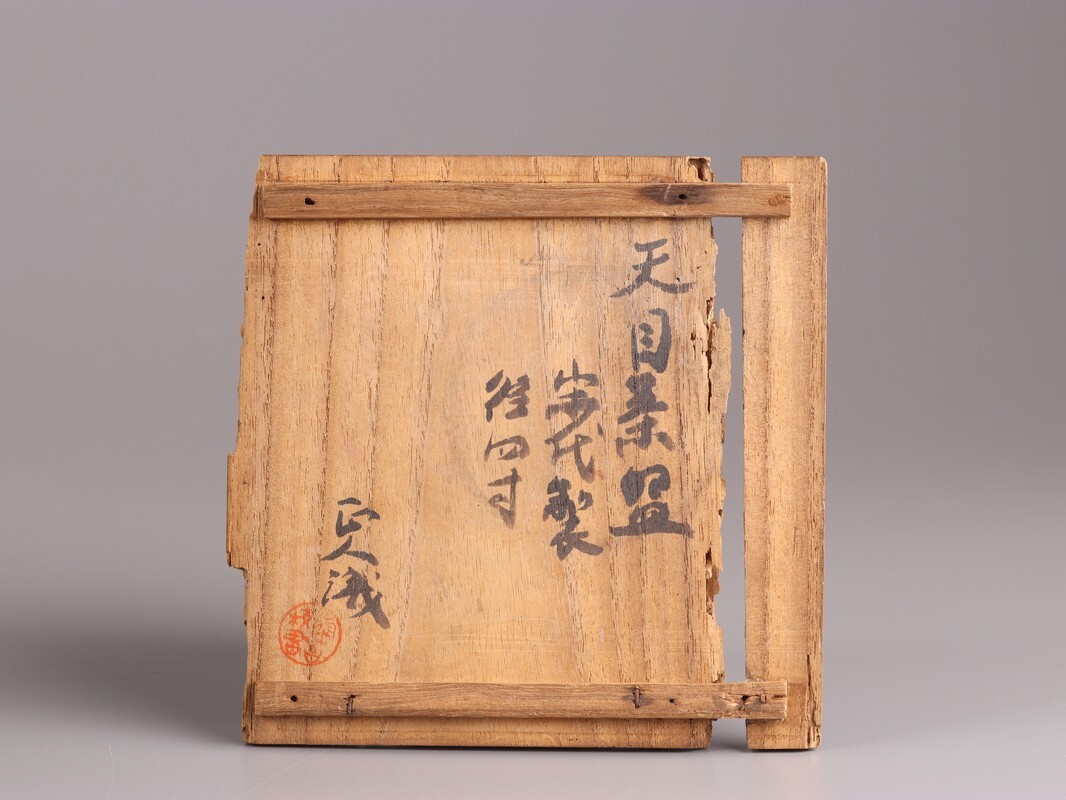 天目茶盌
宋代製
径四寸
正人識